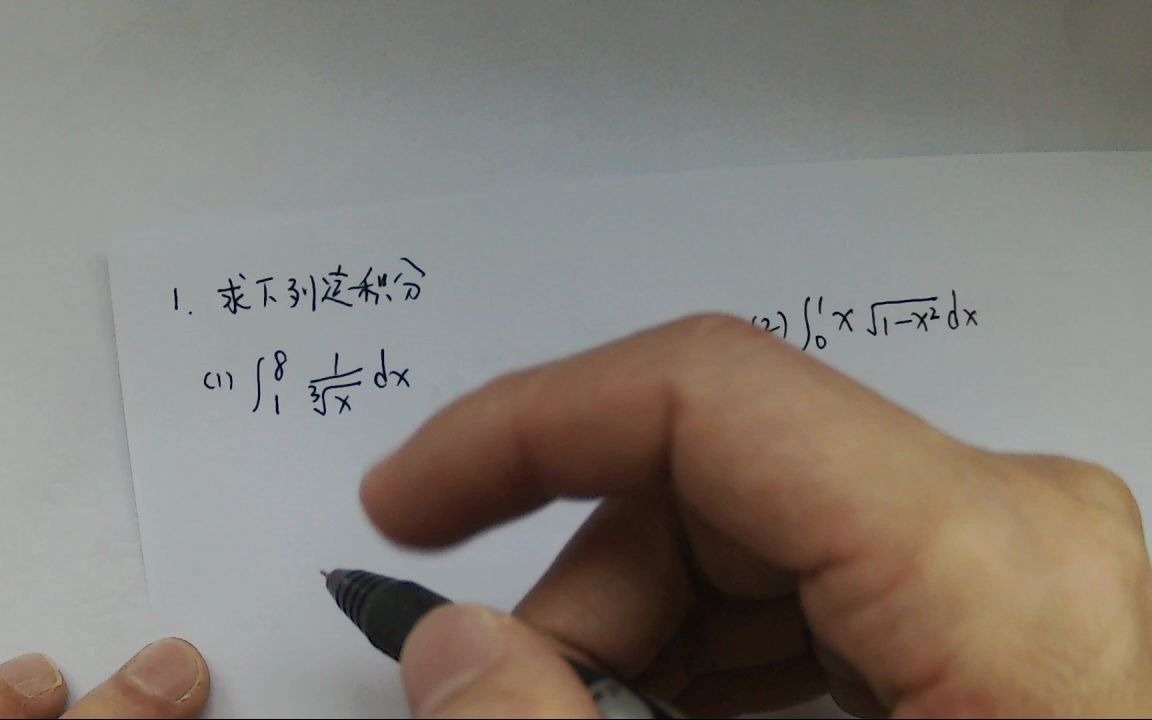 1. 求下列定积分
(1) ∫₁⁸ 1/∛x dx
(2) ∫₀¹ x √(1-x²) dx